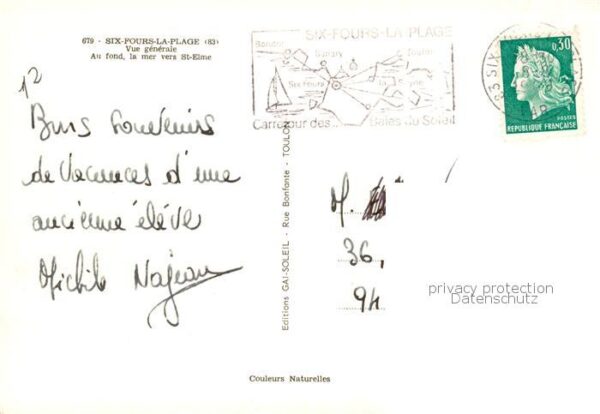 679 - SIX-FOURS-LA-PLAGE (83)
Vue générale
Au fond, la mer vers St-Elme
Bons souvenirs
de vacances d'une
ancienne élève
SIX-FOURS-LA-PLAGE
Bandol Sanary Toulon
Six Fours La Seyne
Carrefour des... Baies du Soleil
0,30
POSTES
REPUBLIQUE FRANÇAISE
Editions GAI-SOLEIL - Rue Bonfante - TOULON
M.
36,
94
privacy protection
Datenschutz
Couleurs Naturelles